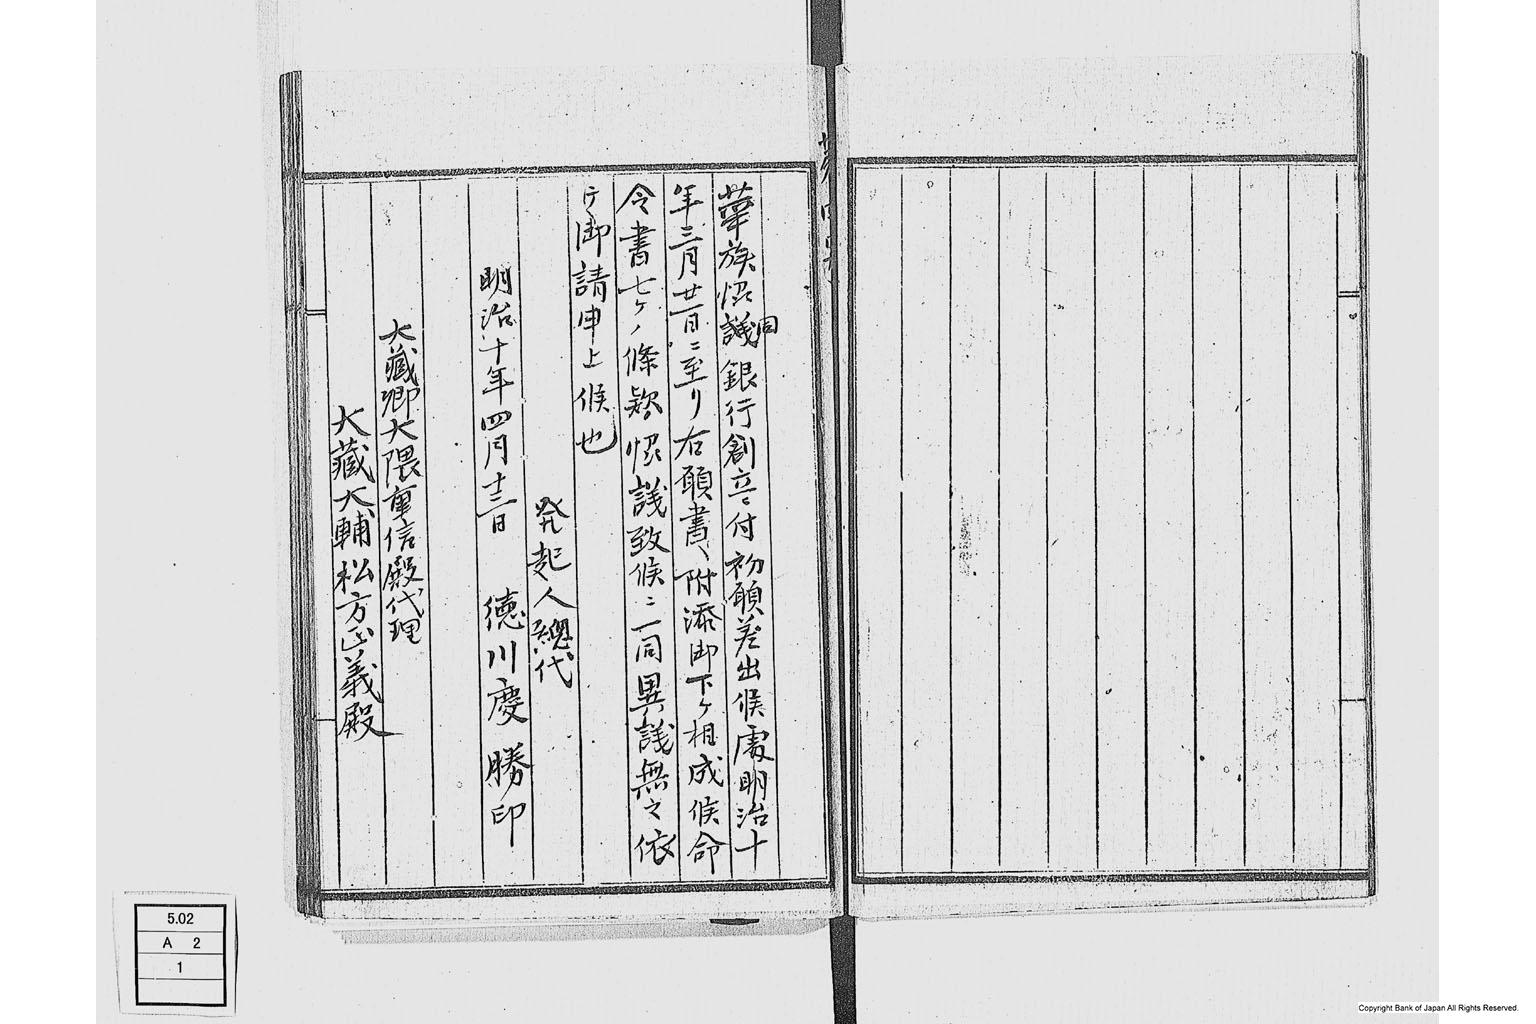 華族協議同銀行創立ニ付初願差出候處明治十
年三月廿一日ニ至リ右願書ヘ附添御下ケ相成候命
令書七ケノ條款協議致候ニ一同異議無之依
テ御請申上候也
発起人總代
明治十年四月十三日 徳川慶勝印
大藏卿大隈重信殿代理
大藏大輔松方正義殿
5.02
A 2
1
Copyright Bank of Japan All Rights Reserved.